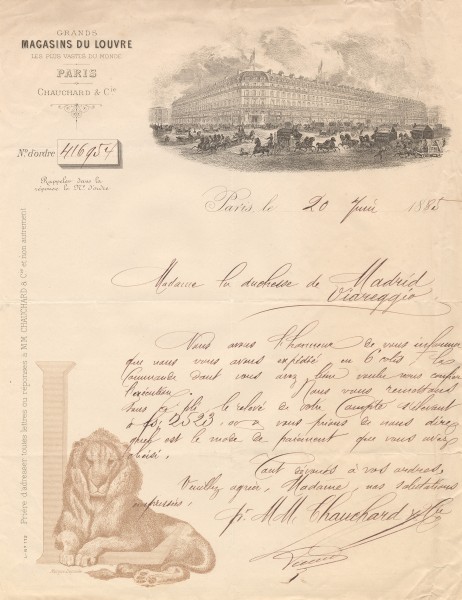 GRANDS
MAGASINS DU LOUVRE
LES PLUS VASTES DU MONDE
PARIS
CHAUCHARD & Cie
No d'ordre 416954
Rappeler dans la
réponse le No d'ordre
Paris, le 20 Juin 1885
Madame la duchesse de Madrid
Viareggio
Nous avons l'honneur de vous informer
que nous vous avons expédié en 6 colis la
Commande dont vous avez bien voulu nous confier
l'exécution. Nous vous remettons
sous ce pli le relevé de votre Compte s'élevant
à fs; 2523, et vous prions de nous dire
quel est le mode de paiement que vous avez
choisi.
Tout dévoués à vos ordres,
Veuillez agréer, Madame, nos salutations
empressées
pr MM. Chauchard & Cie
Prière d'adresser toutes lettres ou réponses à MM CHAUCHARD & Cie et non autrement